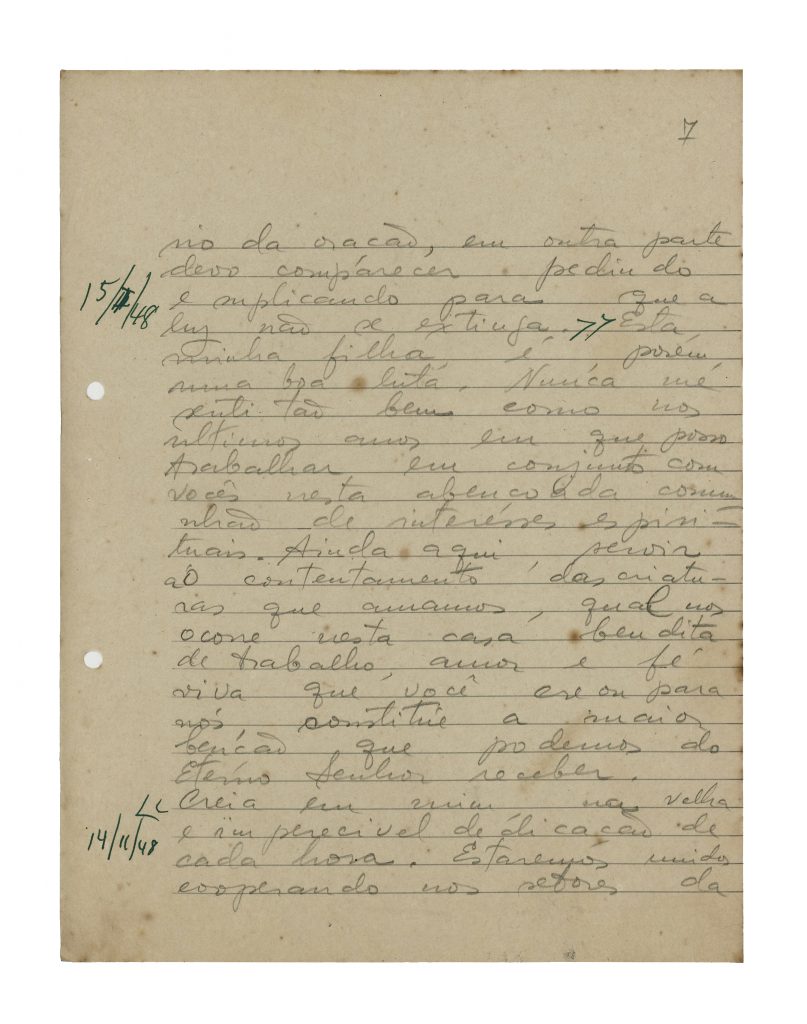 7
rio da oracão, em outra parte
devo comparecer pedindo
15/11/48
e suplicando para que a
luz não se extinga. >> Esta
minha filha é porém
uma boa luta. Nunca me
senti tão bem como nos
ultimos anos em que posso
trabalhar em conjunto com
vocês nesta abencoada comu
nhão de interésses espiri-
tuais. Ainda aqui, servir
aó contentamento das criatu-
ras que amamos, qual nos
ocorre nesta casa bendita
de trabalho, amor e fé
viva que você creou para
nós, constitúe a maior
bencão que podemos do
Eterno Senhor receber.
<< Creia em mim na velha
14/11/48
e imperecivel dedicacão de
cada hora. Estaremos unidos
cooperando nos setores da